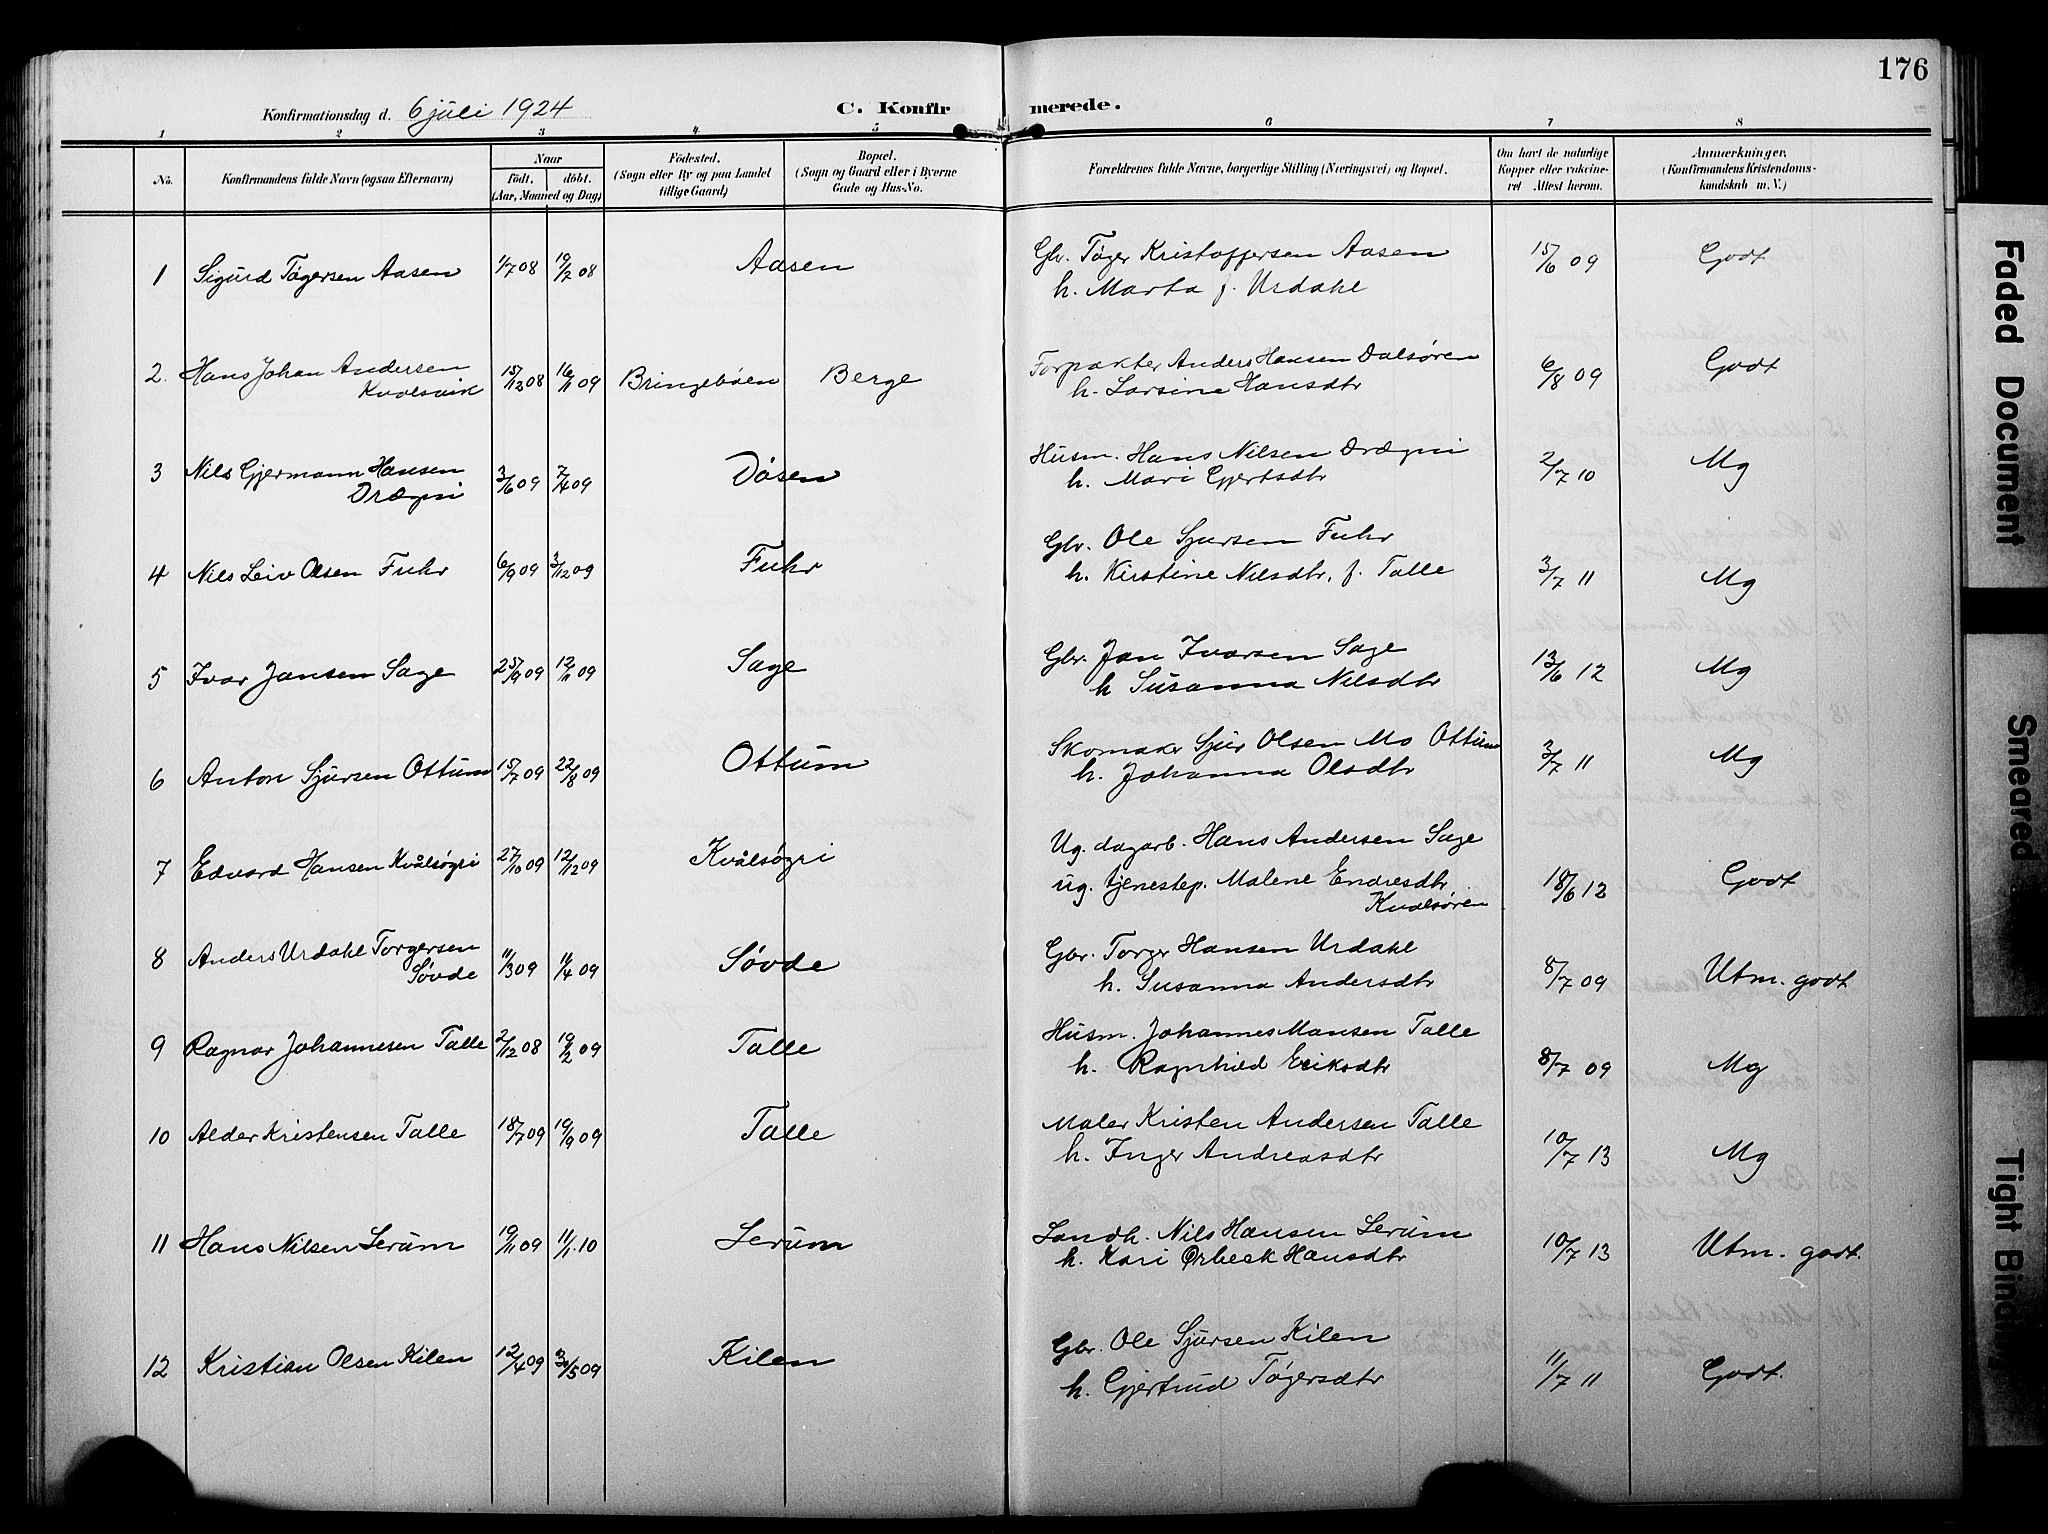 176
Konfirmationsdag d. 6 juli 1924
C. Konfirmerede.
1 2 3 4 5 6 7 8
No.
Konfirmandens fulde Navn (ogsaa Efternavn)
Naar
födt. döbt.
(Aar, Maaned og Dag)
Födested.
(Sogn eller By og paa Landet
tillige Gaard)
Bopæl.
(Sogn og Gaard eller i Byerne
Gade og Hus-No.
Forældrenes fulde Navne, borgerlige Stilling (Næringsvei) og Bopæl.
Om havt de naturlige
Kopper eller vakcine-
ret Attest herom.
Anmærkninger.
(Konfirmandens Kristendoms-
kundskab m. V.)
1 Sigurd Tøgersen Aasen 1/7 08 19/7 08 Aasen Gbr. Tøger Kristoffersen Aasen 15/6 09 Godt
h. Marta f. Urdahl
2. Hans Johan Andersen 15/12 08 16/1 09 Bringebøen Berge Forpakter Anders Hansen Dalsøren 6/8 09 Godt
Kvalsvik h. Larsine Hansdtr
3 Nils Gjermann Hansen 3/6 09 7/4 09 Døsen Husm. Hans Nilsen Drægni 2/7 10 Mg
Drægni h. Mari Gjertsdtr
4 Nils Leiv Olsen Fuhr 6/9 09 3/12 09 Fuhr Gbr. Ole Sjursen Fuhr 3/7 11 Mg
h. Kirstine Nilsdtr. f. Talle
5 Ivar Jansen Sage 25/9 09 12/11 09 Sage Gbr. Jan Ivarsen Sage 13/6 12 Mg
h Susanna Nilsdtr
6 Anton Sjursen Ottum 15/7 09 22/8 09 Ottum Skomaker Sjur Olsen Mo Ottum 3/7 11 Mg
h. Johanna Olsdtr
7 Edvard Hansen Kvålsøgri 27/10 09 12/12 09 Kvålsøgri Ug. dagarb. Hans Andersen Sage 18/6 12 Godt
ug. tjenestep. Malene Endresdtr
Kvalsøren
8 Anders Urdahl Torgersen 11/3 09 11/4 09 Søvde Gbr. Torger Hansen Urdahl 8/7 09 Utm. godt
Søvde h. Susanna Andersdtr
9 Ragnar Johannesen Talle 2/12 08 19/2 09 Talle Husm. Johannes Mansen Talle 8/7 09 Mg
h. Ragnhild Eriksdtr
10 Alder Kristensen Talle 18/7 09 19/9 09 Talle Maler Kristen Andersen Talle 10/7 13 Mg
h. Inger Andreasdtr
11 Hans Nilsen Lerum 19/11 09 11/1 10 Lerum Landh. Nils Hansen Lerum 10/7 13 Utm. godt.
h. Kari Ørbeck Hansdtr
12 Kristian Olsen Kilen 12/4 09 /5 09 Kilen Gbr. Ole Sjursen Kilen 11/7 11 Godt.
h. Gjertrud Tøgersdtr
Faded Document
Smeared
Tight Bind